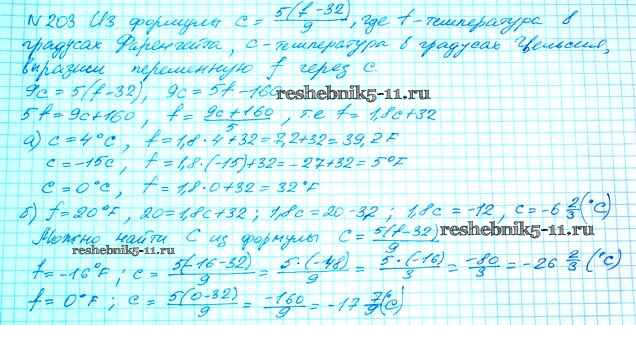 N 203 Из формулы c = 5(f-32)/9, где f - температура в
градусах Фаренгейта, c - температура в градусах Цельсия,
вырази переменную f через c.
9c = 5(f-32), 9c = 5f - 160
reshebnik5-11.ru
5f = 9c+160, f = (9c+160)/5, т.е f = 1,8c+32
а) c = 4°C, f = 1,8·4+32=7,2+32=39,2F
c = -15c, f = 1,8·(-15)+32=-27+32=5°F
c = 0°C, f = 1,8·0+32=32°F
б) f=20°F, 20=1,8c+32; 1,8c=20-32; 1,8c=-12, c=-6 2/3 (°C)
Можно найти C из формулы C = 5(f-32)/9
reshebnik5-11.ru
reshebnik5-11.ru
f=-16°F; c = 5(-16-32)/9 = 5·(-48)/9 = 5·(-16)/3 = -80/3 = -26 2/3 (°C)
f=0°F; c = 5(0-32)/9 = -160/9 = -17 7/9 (°C)